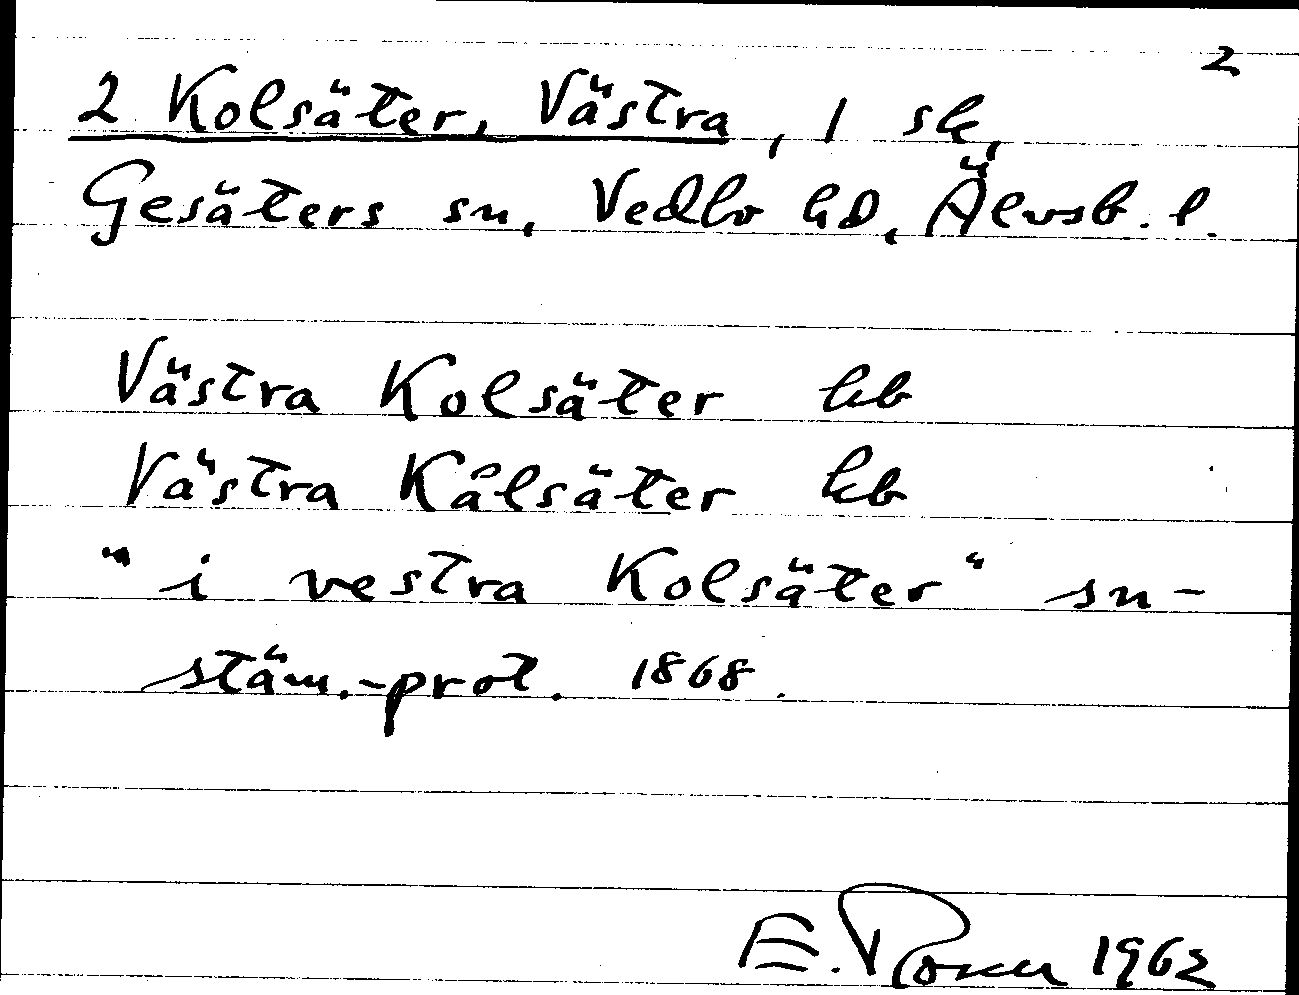 2
2 Kolsäter, Västra, 1 sk,
Gesäters sn, Vedbo hd, Älvsb. l.
Västra Kolsäter kb
Västra Kålsäter kb
"i vestra Kolsäter" sn-
stäm.-prot. 1868.
E. 1962